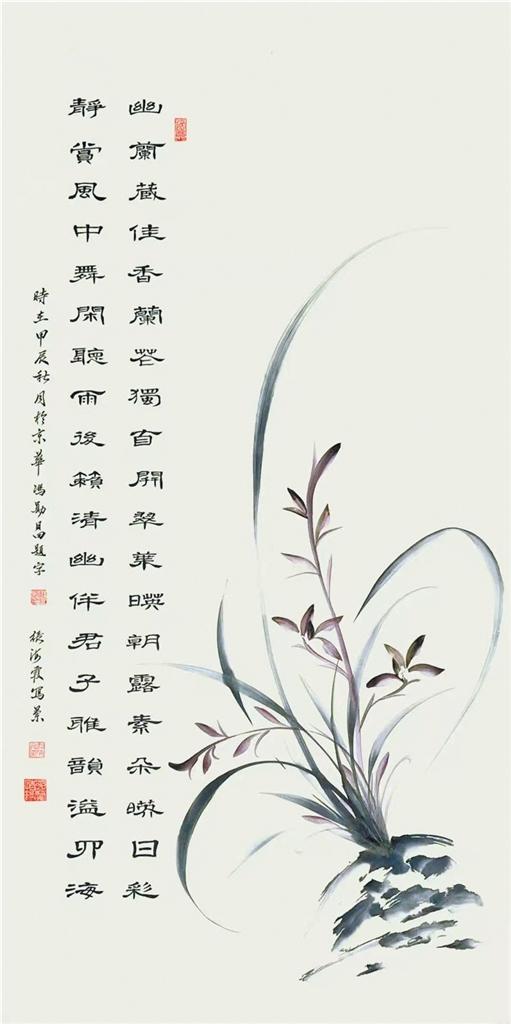 幽蘭藏佳香蘭花獨自開翠葉暎朝露素朵暎日彩
靜賞風中舞閑聽雨後籟清幽伴君子雅韻溢四海
時在甲辰秋月於京華馮勛昌題字
海霞寫景